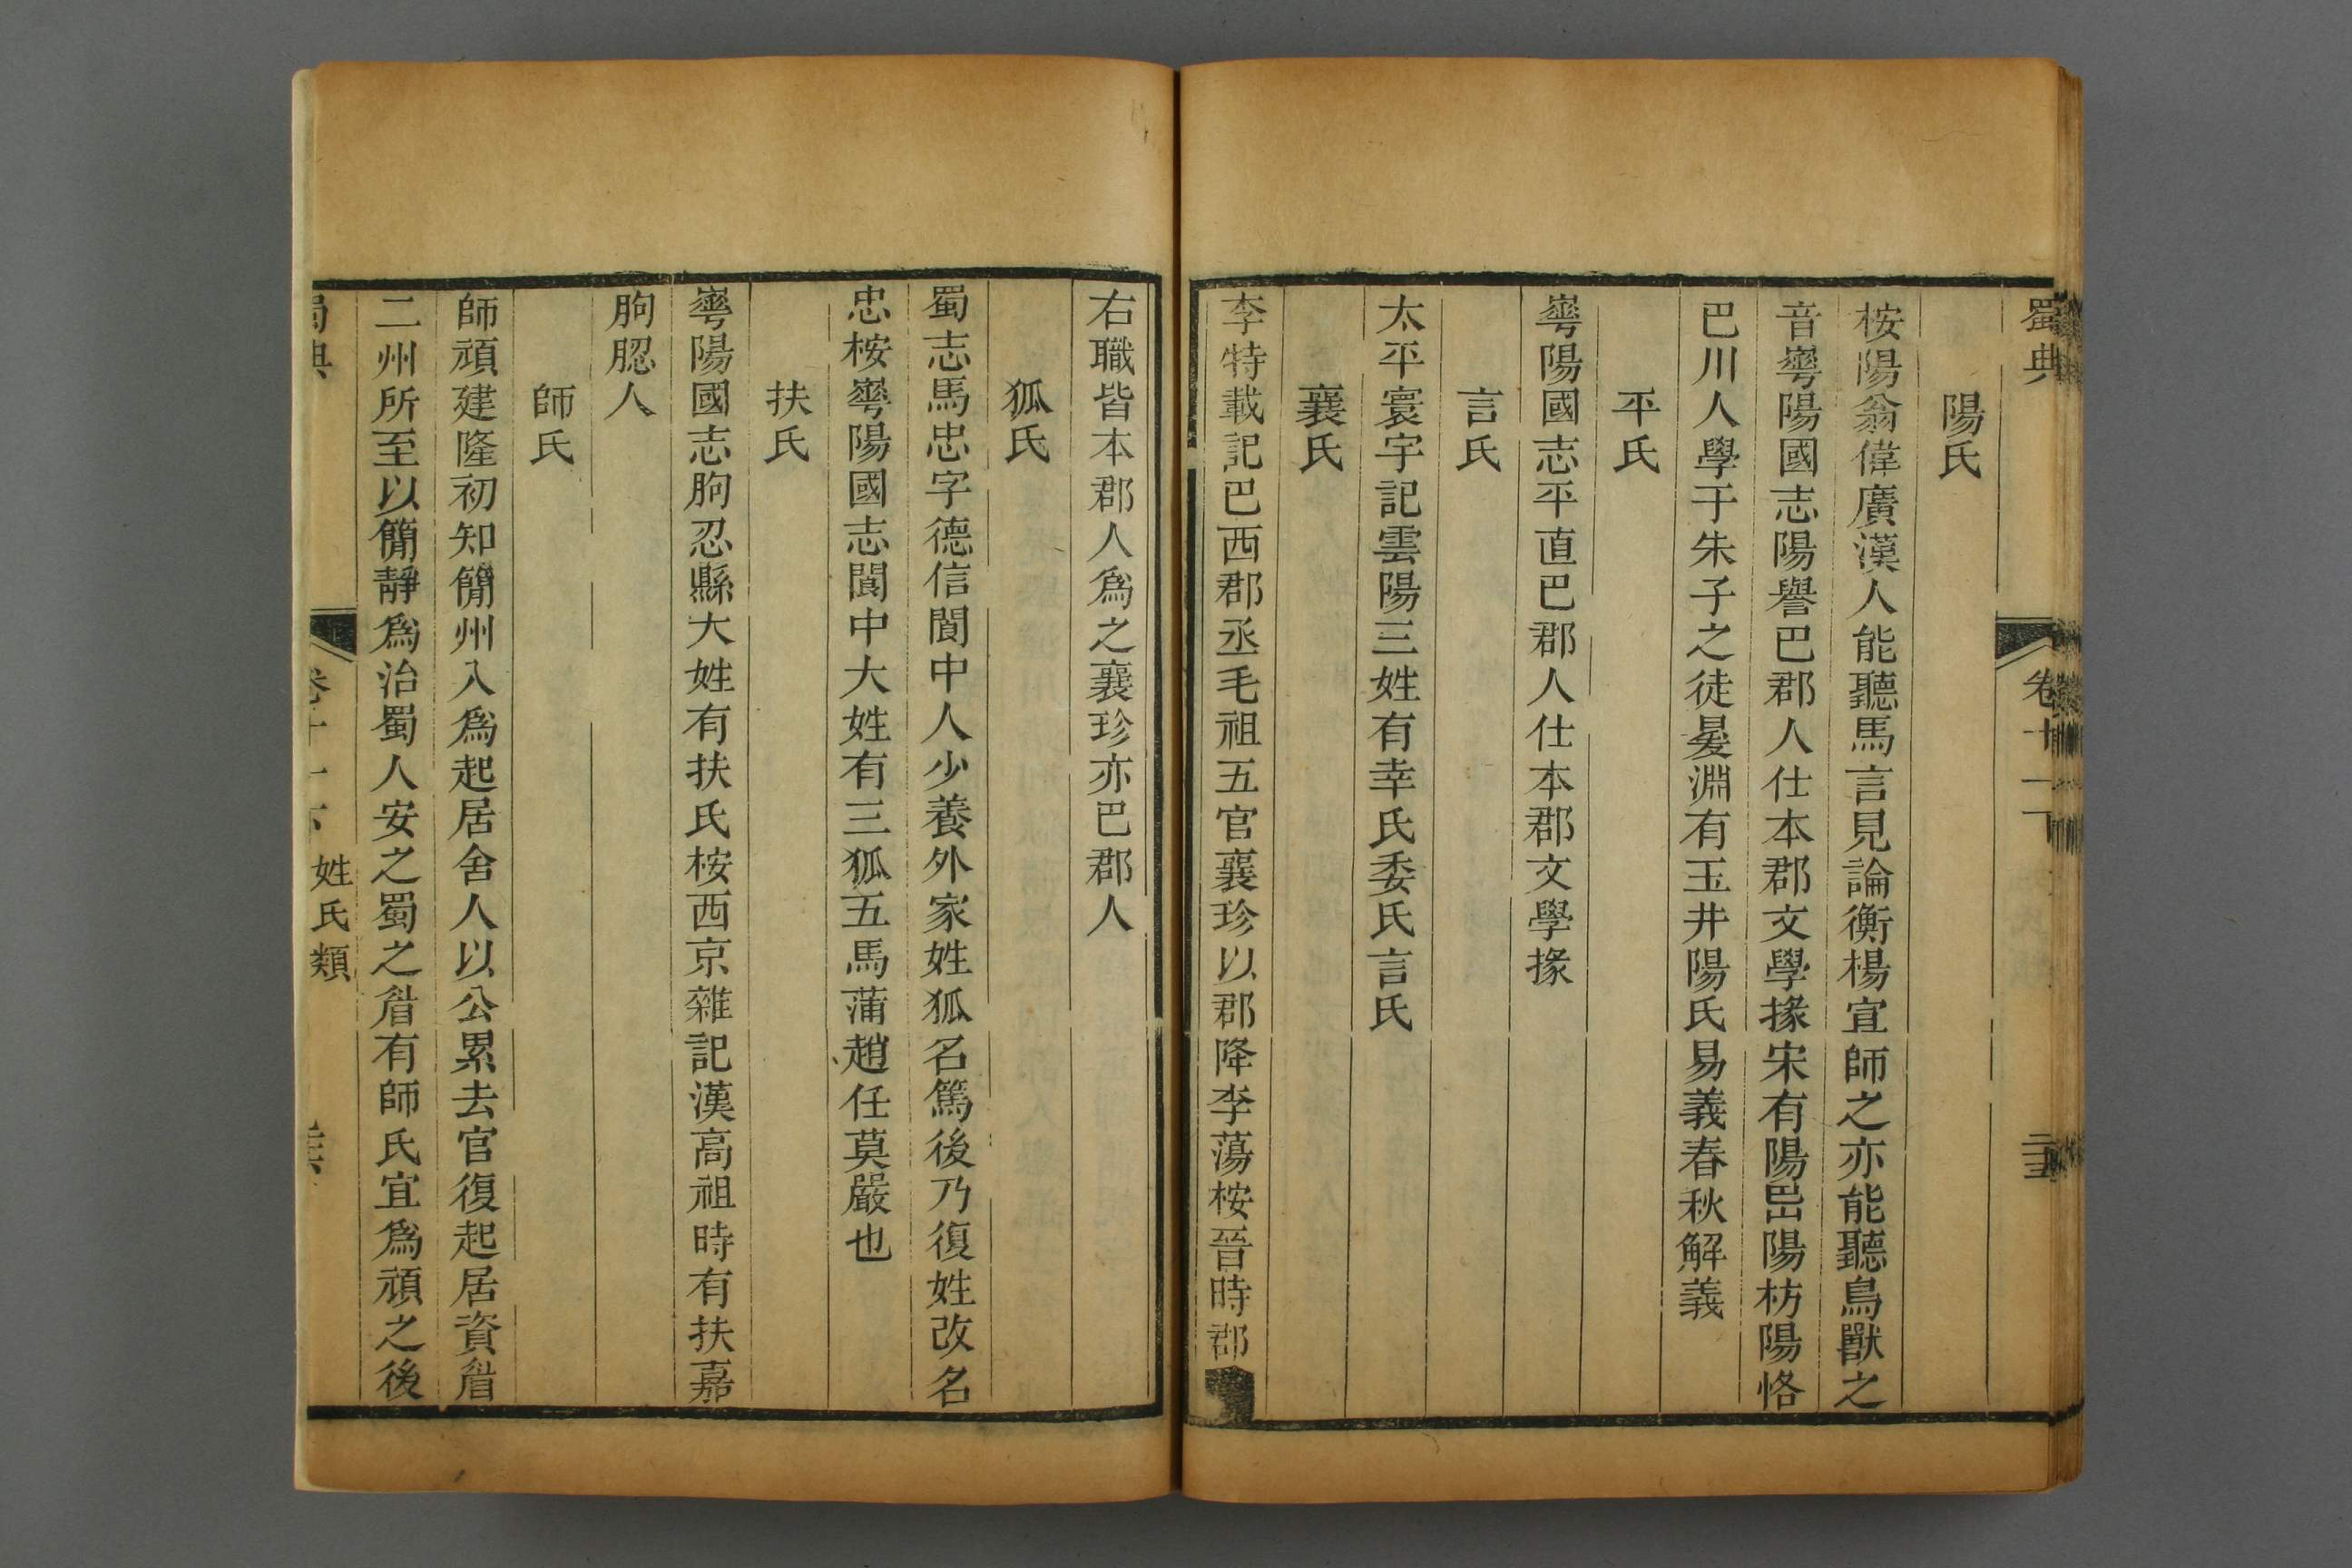 蜀典 卷十一下
陽氏
桉陽翁偉廣漢人能聽馬言見論衡楊宣師之亦能聽鳥獸之
音崋陽國志陽譽巴郡人仕本郡文學掾宋有陽嵒陽枋陽恪
巴川人學于朱子之徒㬊淵有玉井陽氏易義春秋解義
平氏
崋陽國志平直巴郡人仕本郡文學掾
言氏
太平寰宇記雲陽三姓有幸氏委氏言氏
襄氏
李特載記巴西郡丞毛祖五官襄珍以郡降李蕩桉晉時郡
右職皆本郡人爲之襄珍亦巴郡人
狐氏
蜀志馬忠字德信閬中人少養外家姓狐名篤後乃復姓改名
忠桉崋陽國志閬中大姓有三狐五馬蒲趙任莫嚴也
扶氏
崋陽國志朐忍縣大姓有扶氏桉西京雜記漢高祖時有扶嘉
朐䏰人
師氏
師頏建隆初知簡州入爲起居舍人以公累去官復起居資眉
二州所至以簡靜爲治蜀人安之蜀之眉有師氏宜爲頏之後
蜀典 卷十一下 姓氏類